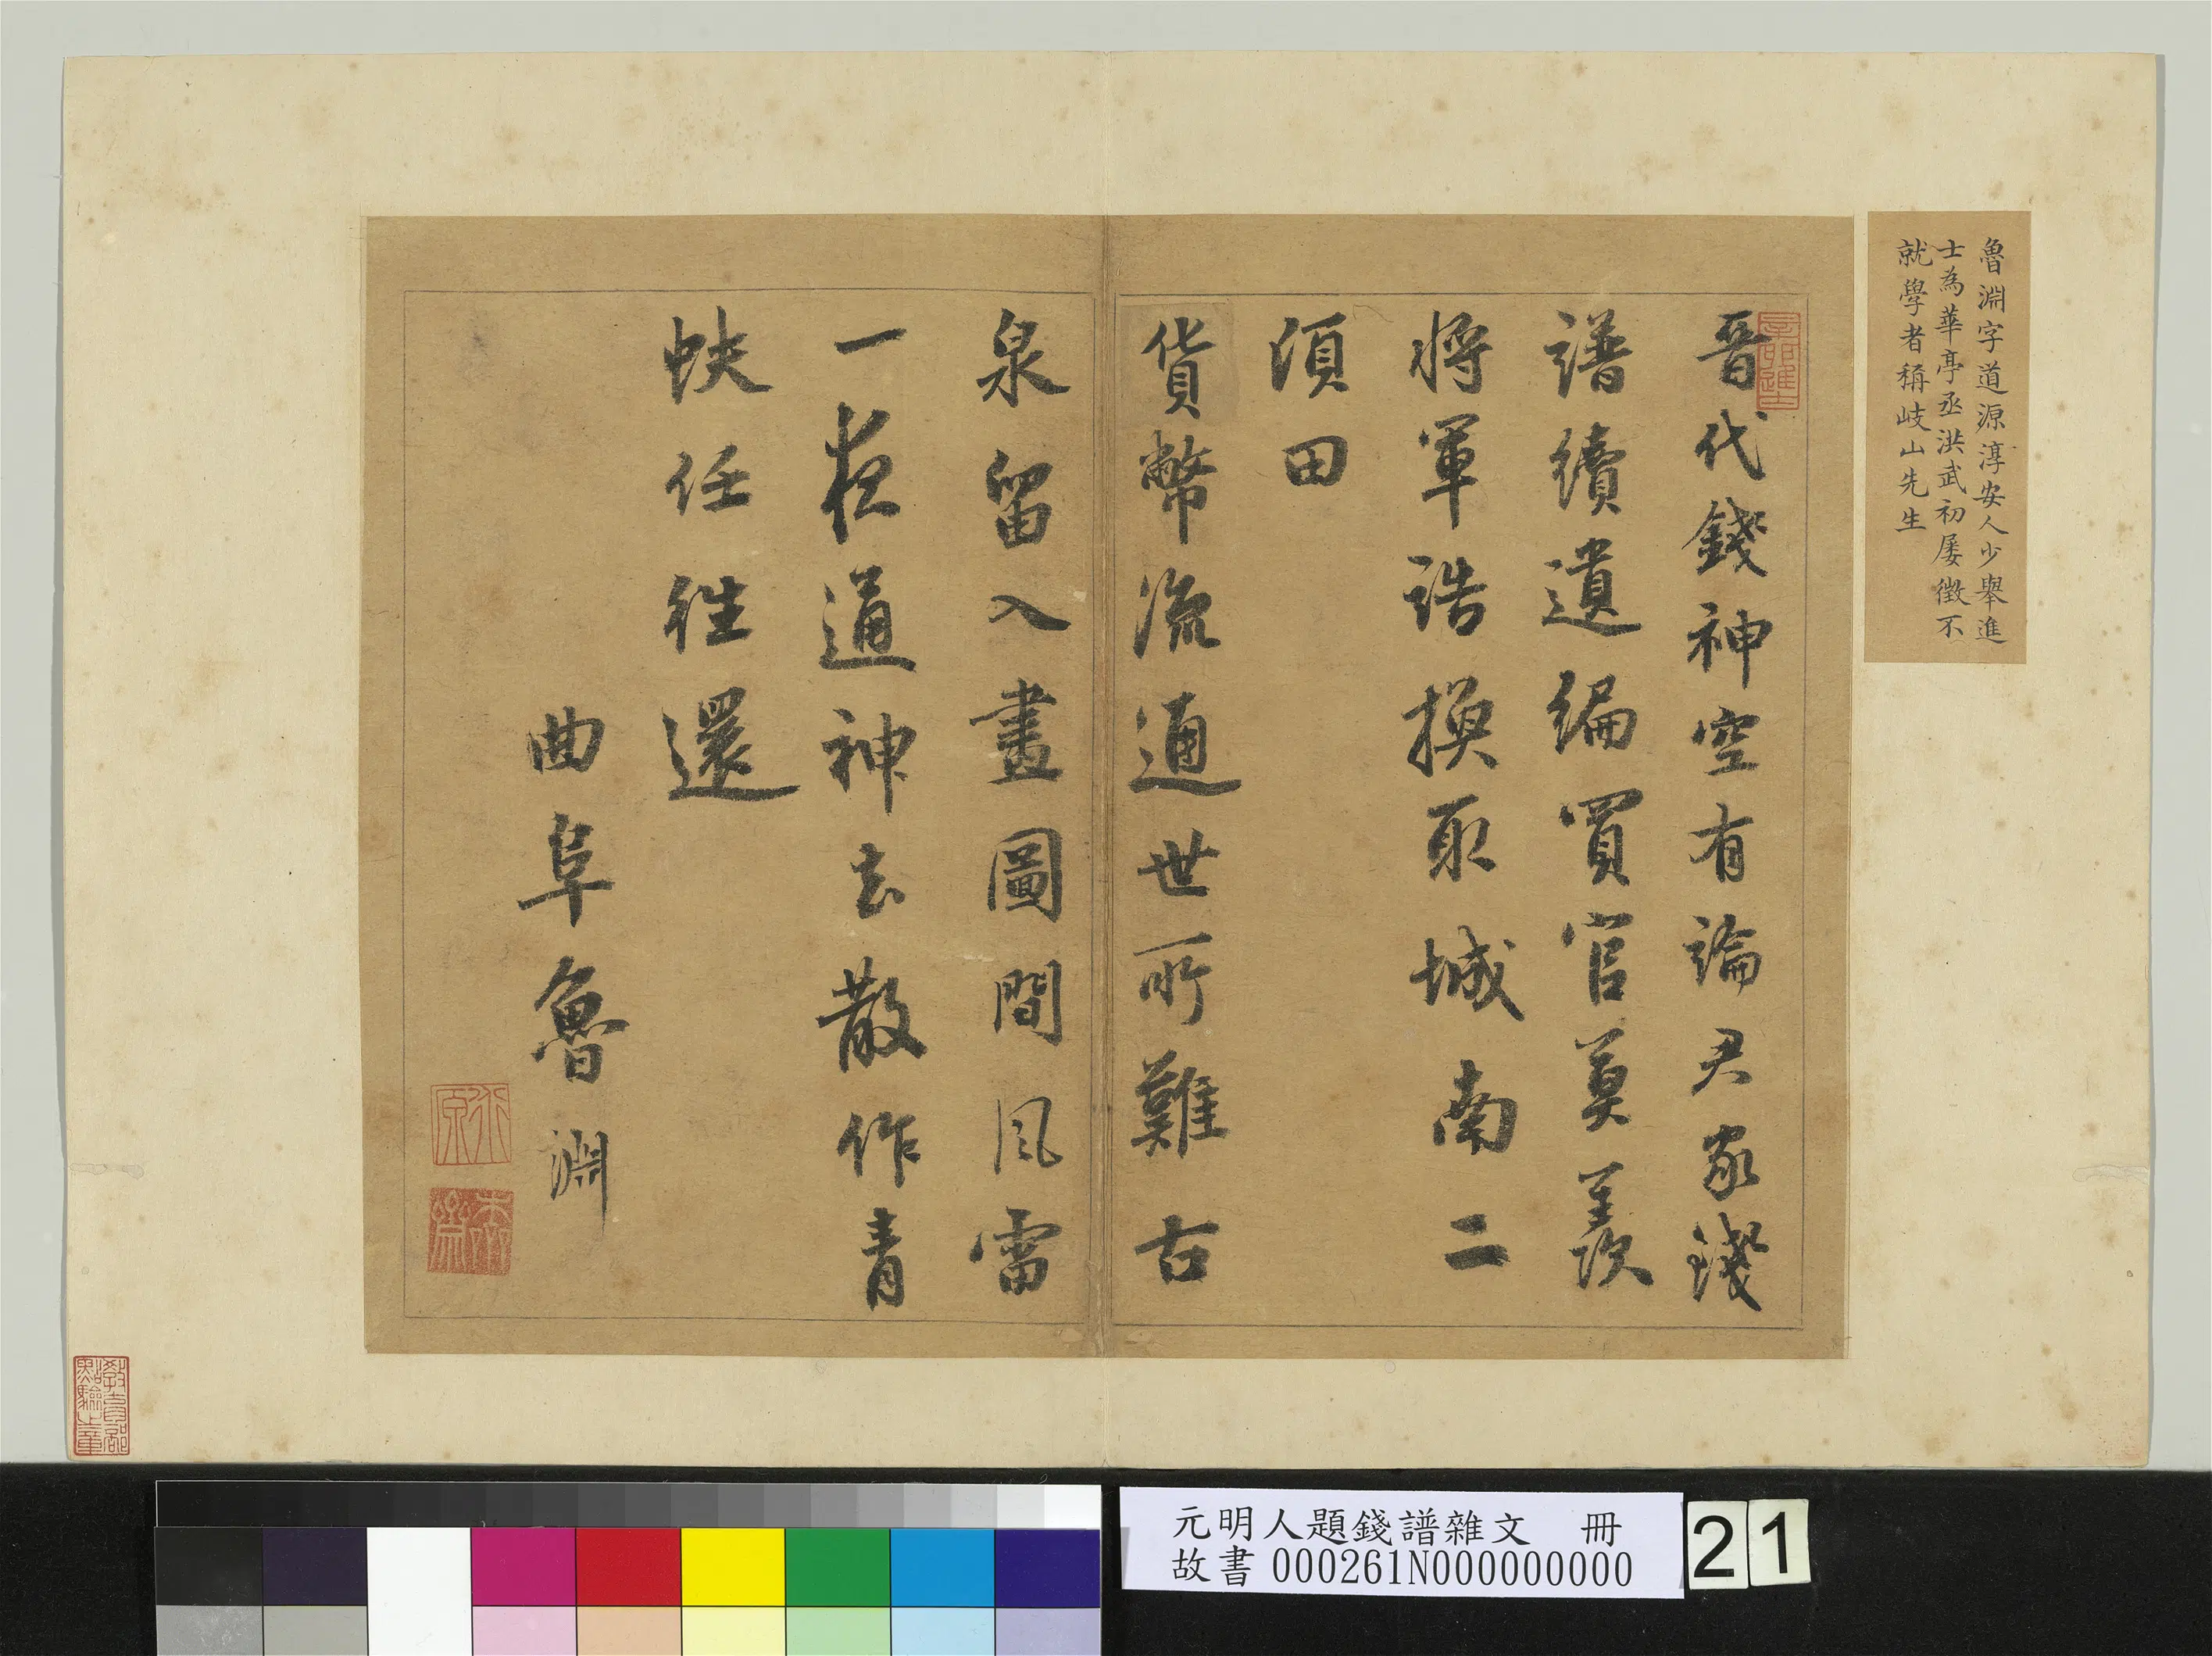 魯淵字道源淳安人少舉進
士為華亭丞洪武初屢徵不
就學者稱岐山先生
晉代錢神空有論尹家錢
譜續遺編買官莫羨
將軍誥換取城南二
頃田
貨幣流通世所難古
泉留入畫圖間風雷
一夜通神去散作青
蚨任往還
曲阜魯淵
教育部
點驗之章
元明人題錢譜雜文 冊
故書 000261N000000000
21